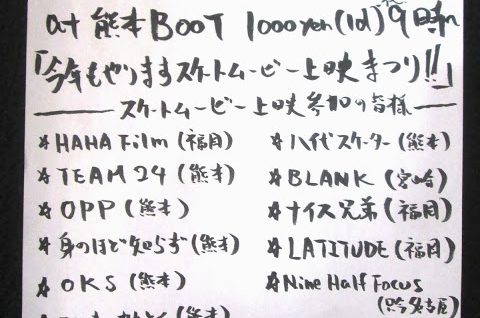 at 熊本BOOT 1000yen(1d) 9時〜
「今年もやりますスケートムービー上映まつり!!」
スケートムービー上映参加の皆様
☆HAHA Film (福岡)
☆TEAM 24 (熊本)
☆OPP (熊本)
☆身のほど知らず(熊本)
☆OKS (熊本)
(熊本)
☆八代スケーター(熊本)
☆BLANK (宮崎)
☆ナイス兄弟 (福岡)
☆LATITUDE (福岡)
☆Nine Half Focus
名古屋)